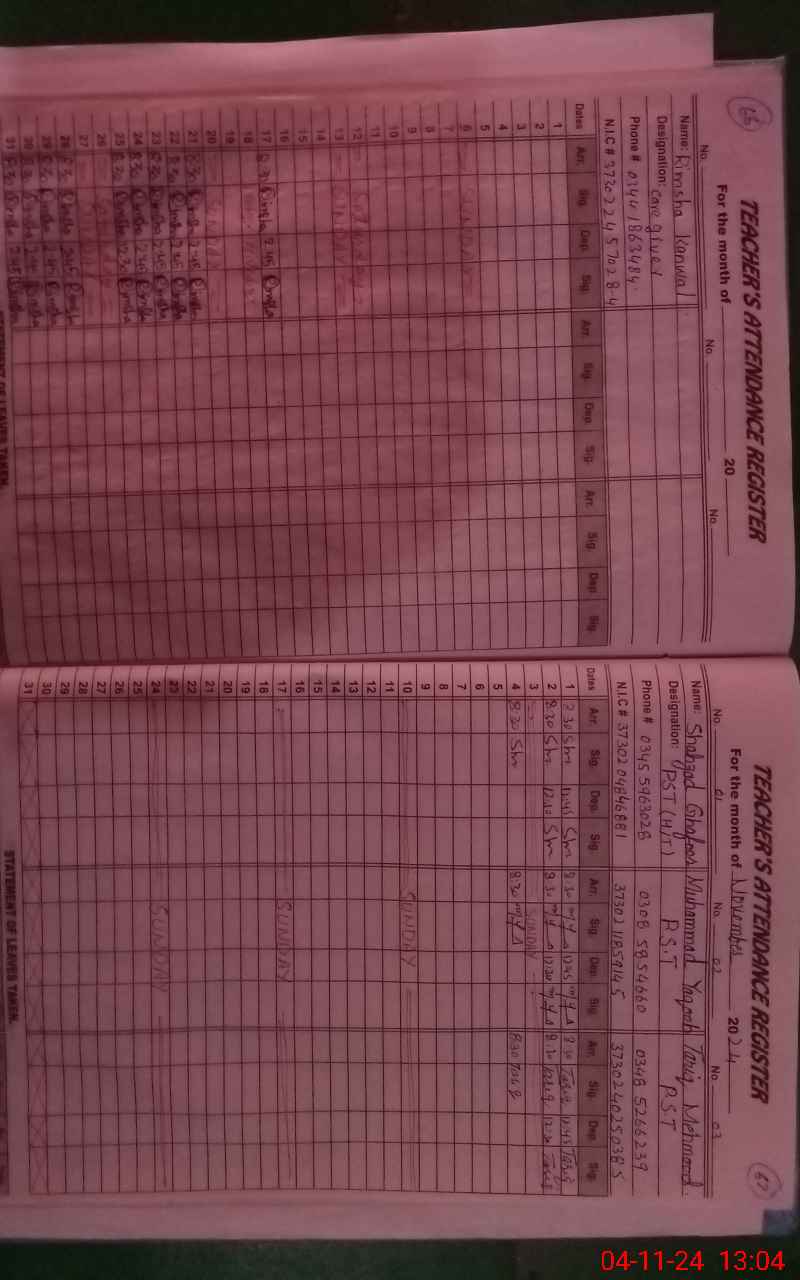 66
TEACHER'S ATTENDANCE REGISTER
For the month of 20
No. No. No.
Name: Rimsha Kanwal
Designation: Care giver
Phone # 03441863484
N.I.C # 3730224570284
Dates Arr. Sig. Dep. Sig. Arr. Sig. Dep. Sig. Arr. Sig. Dep. Sig.
1
2
3
4
5
6 SUNDAY
7
8
9
10
11
12
13 SUNDAY
14
15
16
17 8:30 Rimsha 2:45 Rimsha
18
19
20 SUNDAY
21 8:30 Rimsha 2:45 Rimsha
22 8:30 Rimsha 2:45 Rimsha
23 8:30 Rimsha 2:45 Rimsha
24 8:30 Rimsha 2:45 Rimsha
25 8:30 Rimsha 12:30 Rimsha
26
27
28 8:30 Rimsha 2:45 Rimsha
29 8:30 Rimsha 2:45 Rimsha
30 8:30 Rimsha 2:45 Rimsha
31 8:30 Rimsha 2:45 Rimsha
STATEMENT OF LEAVES TAKEN.
67
TEACHER'S ATTENDANCE REGISTER
For the month of November 2024
No. 01 No. 02 No. 03
Name: Shahzad Ghafoor Muhammad Yaqoob Tariq Mehmood
Designation: PST (H/T) P.S.T P.S.T
Phone # 0345 5963028 0308 5854660 0348 5266239
N.I.C # 37302 04846881 37302 11859145 3730240250385
Dates Arr. Sig. Dep. Sig. Arr. Sig. Dep. Sig. Arr. Sig. Dep. Sig.
1 8:30 Shz 12:45 Shz 8:30 12:45 8:30 Tariq 12:45 Tariq
2 8:30 Shz 12:30 Shz 8:30 12:30 8:30 Tariq 12:30 Tariq
3 SUNDAY
4 8:30 Shz 8:30 8:30 Tariq
5
6
7
8
9
10 SUNDAY
11
12
13
14
15
16
17 SUNDAY
18
19
20
21
22
23
24 SUNDAY
25
26
27
28
29
30
31
STATEMENT OF LEAVES TAKEN.
04-11-24 13:04